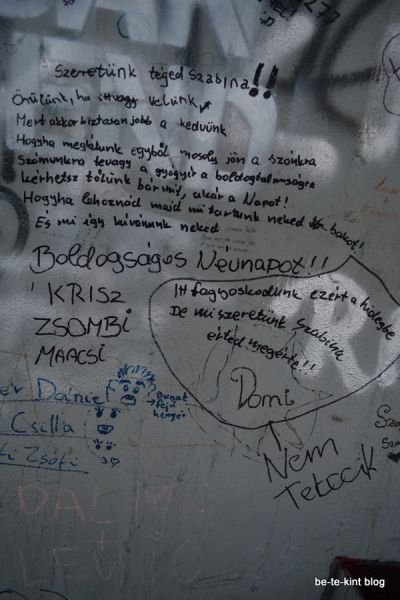 Szeretünk téged Szabina!!
Örülünk, ha itt vagy velünk
Mert akkor biztosan jobb a kedvünk
Hogyha meglátunk egyből mosoly jön a szánkra
Számunkra te vagy a gyógyír a boldogtalanságra
kérhetsz tőlünk bármit, akár a Napot!
Hogyha lehoznád majd mi tartunk neked bakot!
És mi így kívánunk neked
Boldogságos Névnapot!!
KRISZ
ZSOMBI
MARCSI
Itt fagyoskodunk ezért a hidegbe
De mi szeretünk Szabina
érted megérte!!
Domi
Nem
Tetccik
Dániel
Csilla
Zsófi
DALMA
+
be-te-kint blog